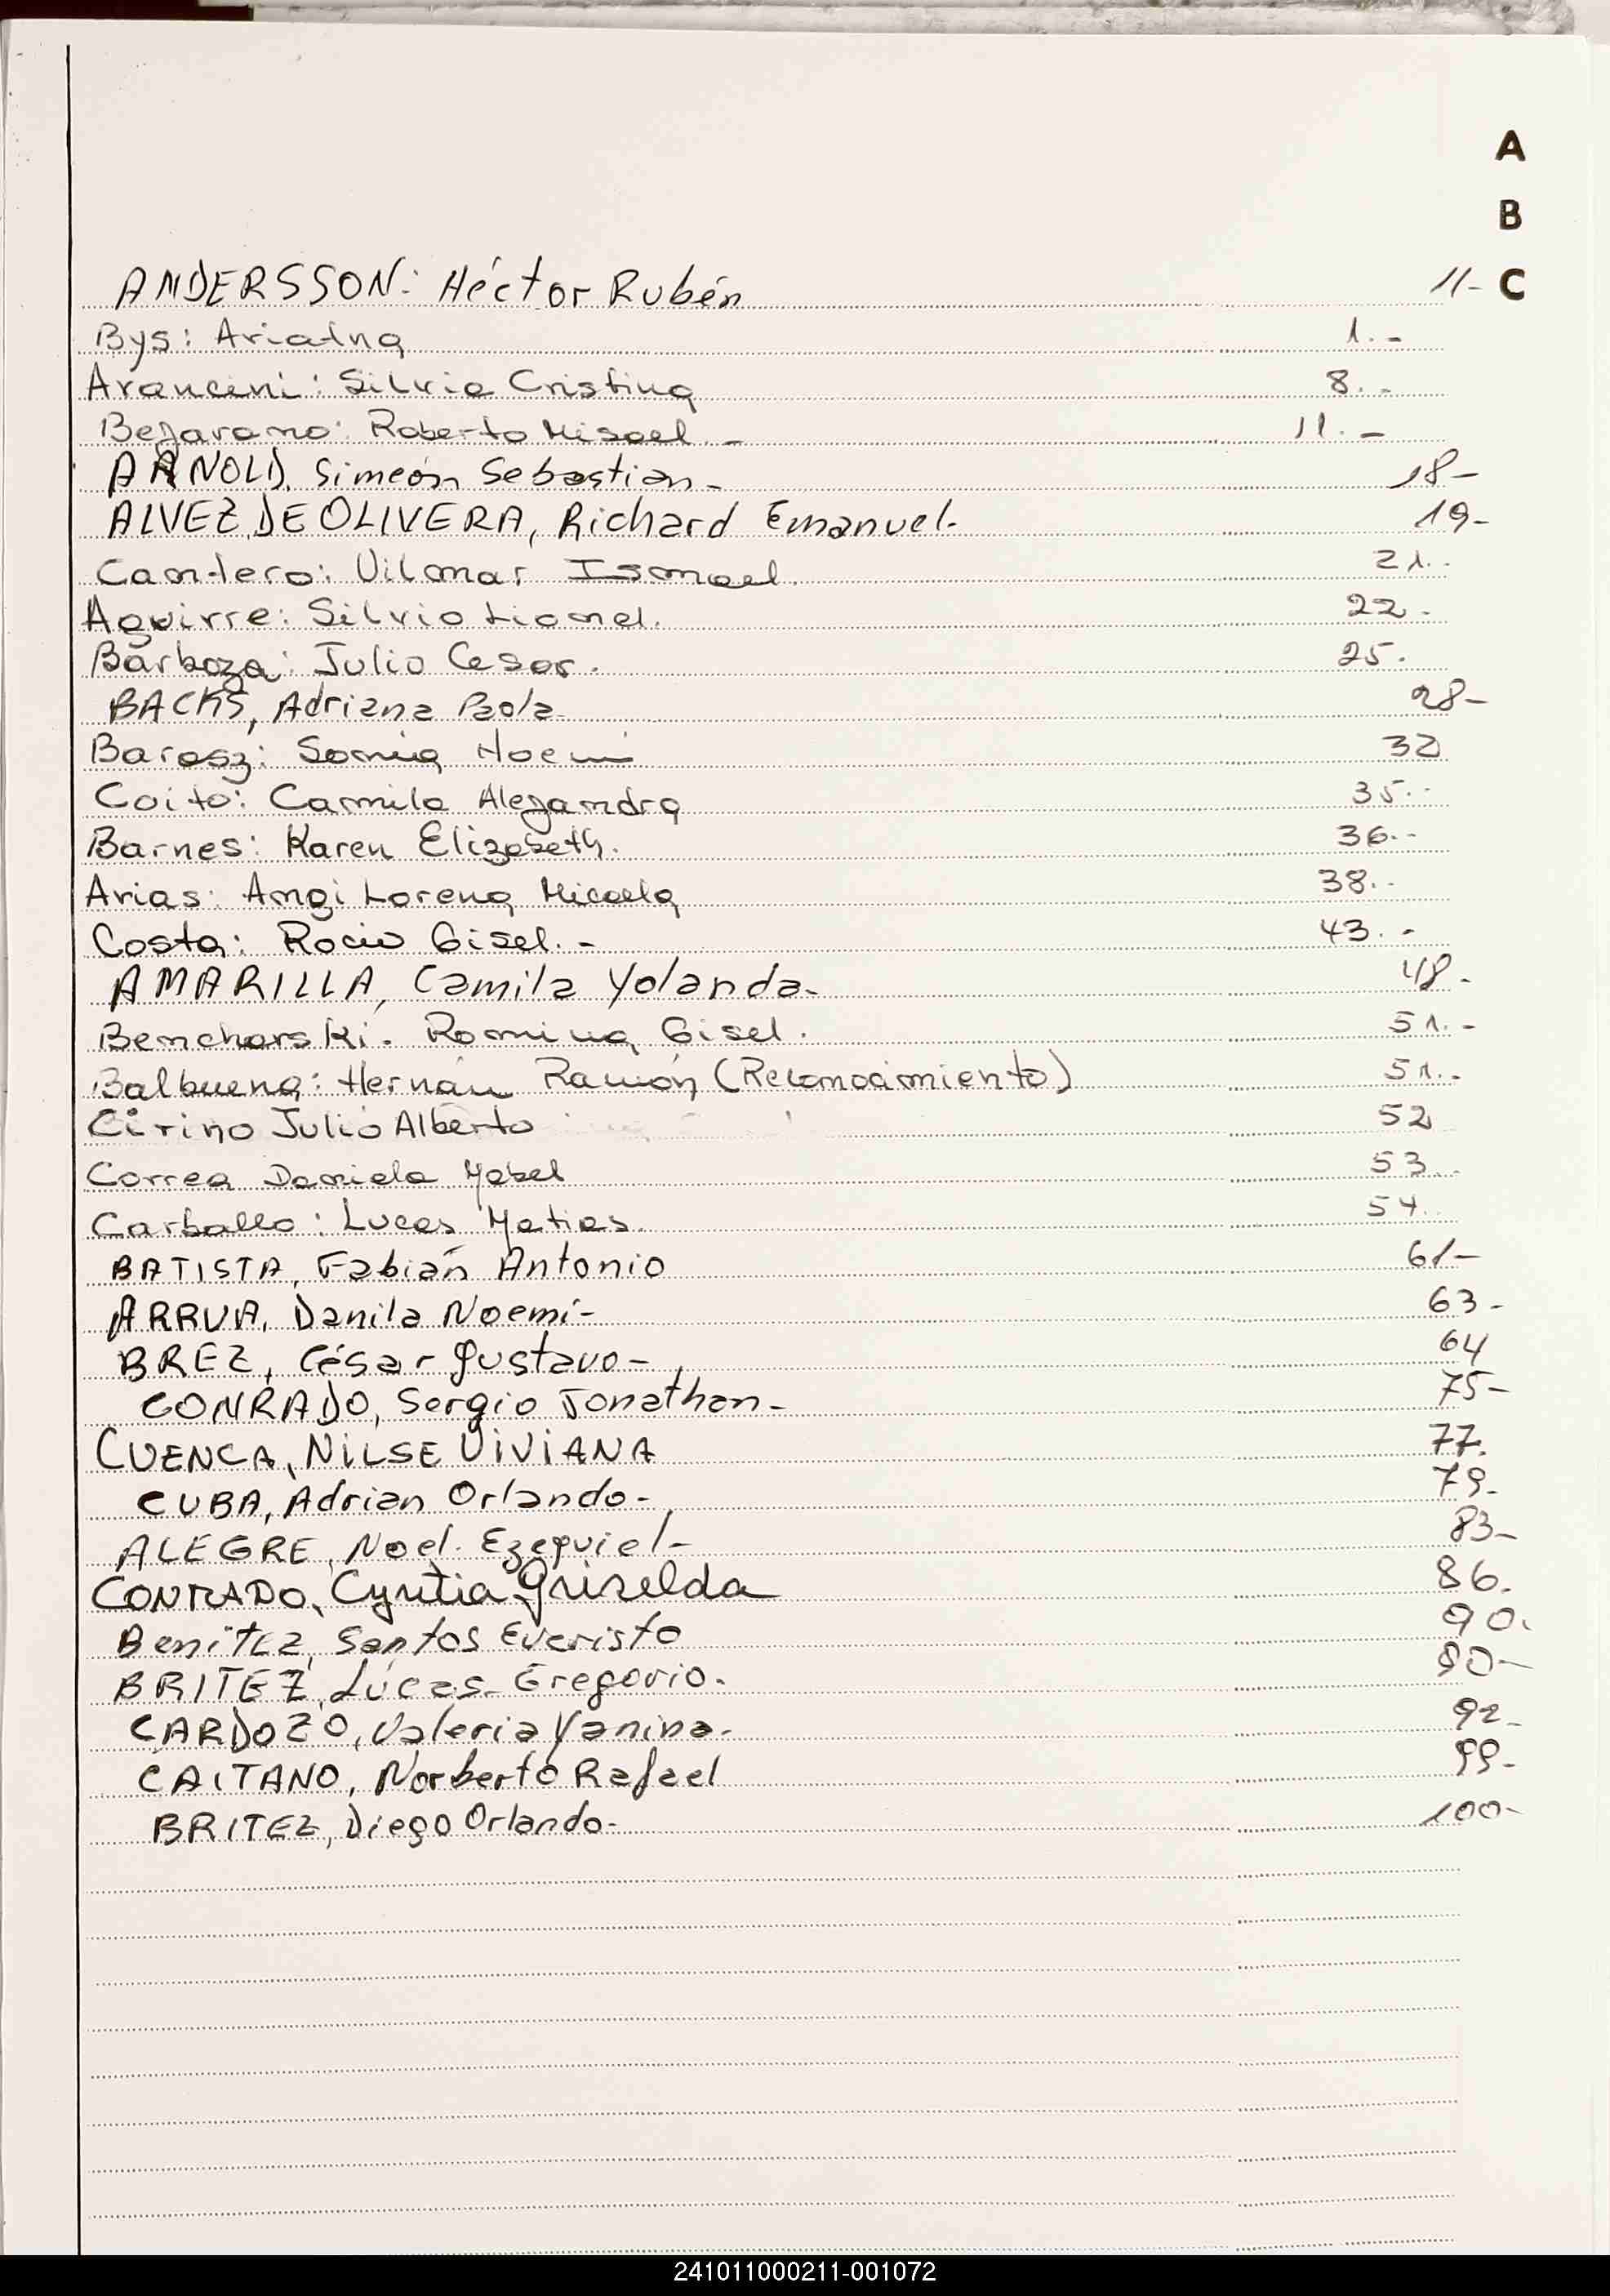 A
B
ANDERSSON: Héctor Rubén 11- C
Bys: Ariadna 1.-
Arancini: Silvia Cristina 8.-
Bejarano: Roberto Misael.- 11.-
ARNOLD, Simeón Sebastian- 18-
ALVEZ DE OLIVERA, Richard Emanuel- 19-
Cantero: Vilmar Ismael. 21.-
Aguirre: Silvio Lionel. 22-
Barboza: Julio Cesar. 25.
BACKS, Adriana Paola 28-
Barosz: Sonia Noemi 32
Coito: Camila Alejandra 35.-
Barnes: Karen Elizabeth. 36.-
Arias: Angi Lorena Micaela 38.-
Costa: Rocio Gisel.- 43.-
AMARILLA, Camila Yolanda- 48-
Bencharski. Romina Gisel. 51.-
Balbuena: Hernán Ramón (Reconocimiento) 51.-
Cirino Julio Alberto 52
Correa Daniela Mabel 53.-
Carballo: Lucas Matias. 54.
BATISTA, Fabián Antonio 61-
ARRUA, Danila Noemí- 63-
BREZ, César Gustavo- 64
CONRADO, Sergio Jonathan- 75-
CUENCA, NILSE VIVIANA 77.
CUBA, Adrian Orlando- 79-
ALEGRE, Noel Ezequiel- 83-
CONRADO, Cyntia Griselda 86.
BenITEZ, Santos Evaristo 90.
BRITEZ, Lucas Gregorio. 90-
CARDOZO, Valeria Yanina- 92-
CAITANO, Norberto Rafael 99-
BRITEZ, Diego Orlando- 100-
241011000211-001072